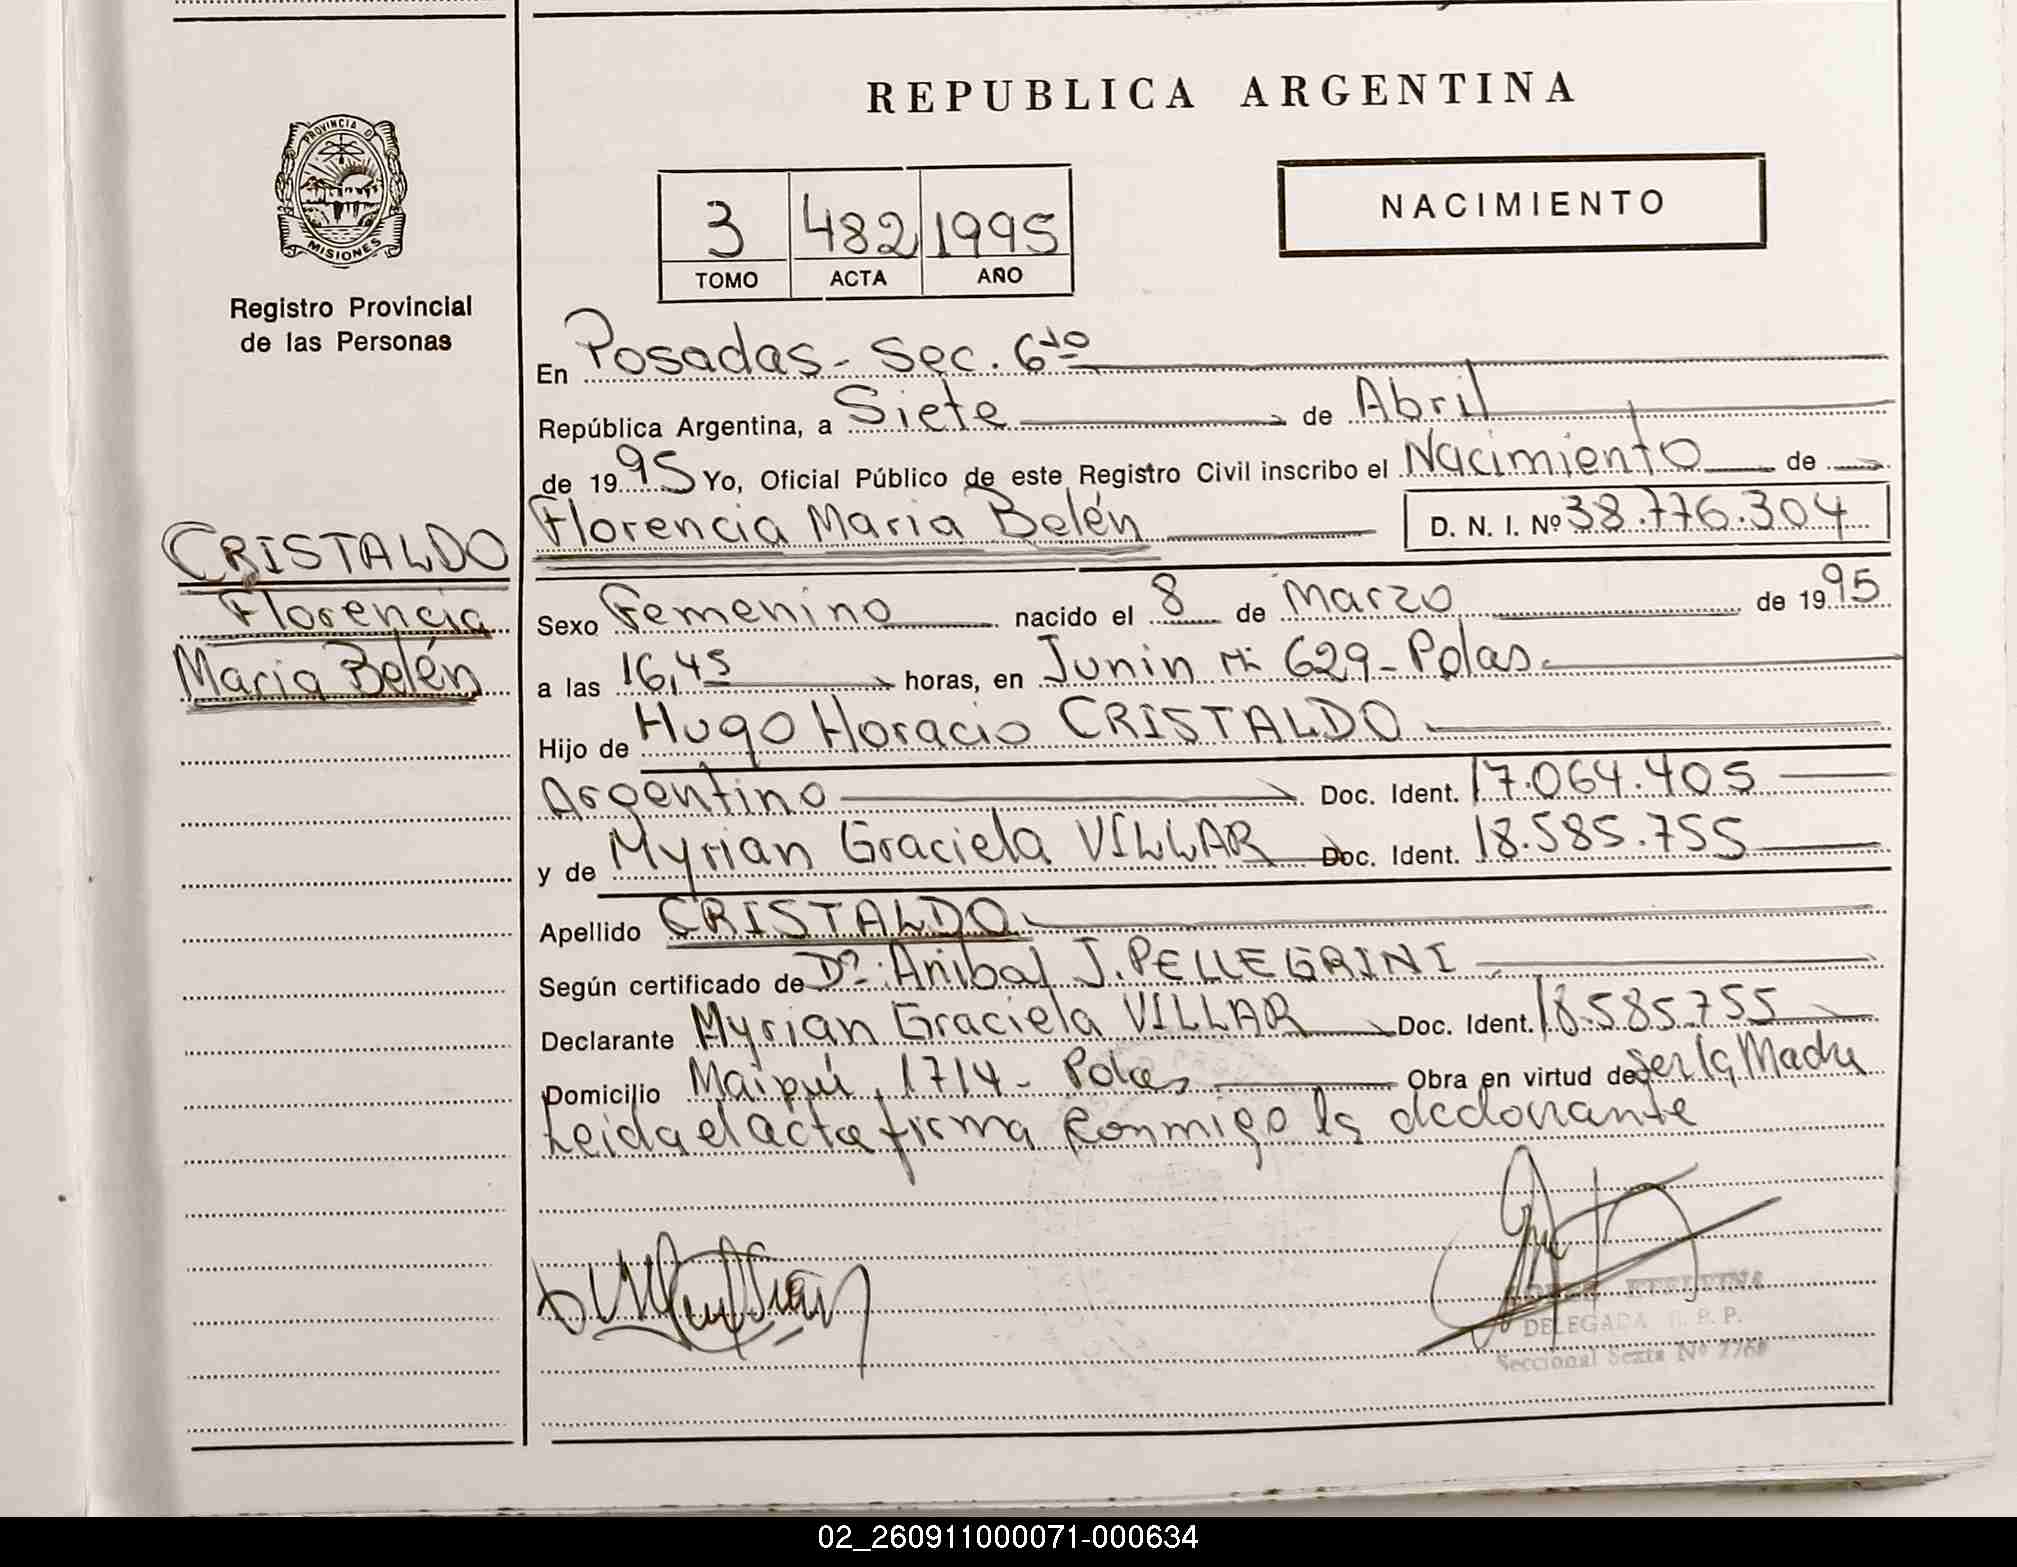 PROVINCIA D
MISIONES
Registro Provincial
de las Personas
CRISTALDO
Florencia
Maria Belén
REPUBLICA ARGENTINA
NACIMIENTO
3 482 1995
TOMO ACTA AÑO
En Posadas - Sec. 6ta
República Argentina, a Siete de Abril
de 1995 Yo, Oficial Público de este Registro Civil inscribo el Nacimiento de
Florencia Maria Belén D. N. I. Nº 38.776.304
Sexo Femenino nacido el 8 de Marzo de 1995
a las 16,45 horas, en Junin Nº 629 - Pdas.
Hijo de Hugo Horacio CRISTALDO
Argentino Doc. Ident. 17.064.405
y de Myrian Graciela VILLAR Doc. Ident. 18.585.755
Apellido CRISTALDO
Según certificado de Dr. Anibal J. PELLEGRINI
Declarante Myrian Graciela VILLAR Doc. Ident. 18.585.755
Domicilio Maipú 1714 - Pdas Obra en virtud de Ser la Madre
Leida el acta firma conmigo la declarante
DELEGADA R. P. P.
Seccional Sexta Nº
02_260911000071-000634